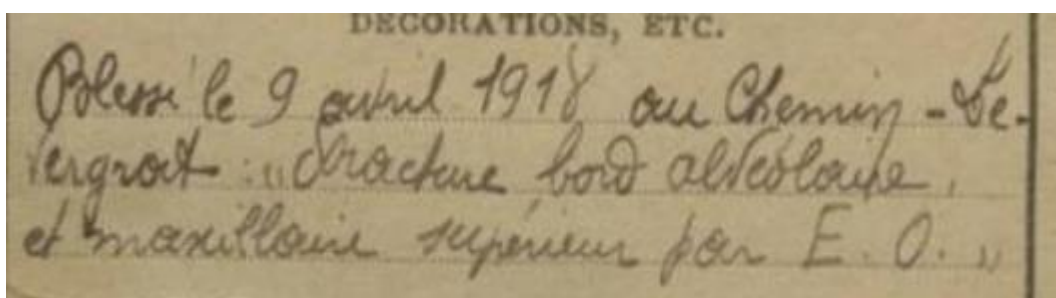 DECORATIONS, ETC.
Blessé le 9 avril 1918 au Chemin - Le-
Vergroit : "fracture bord alvéolaire,
et maxillaire supérieur par E. O. "